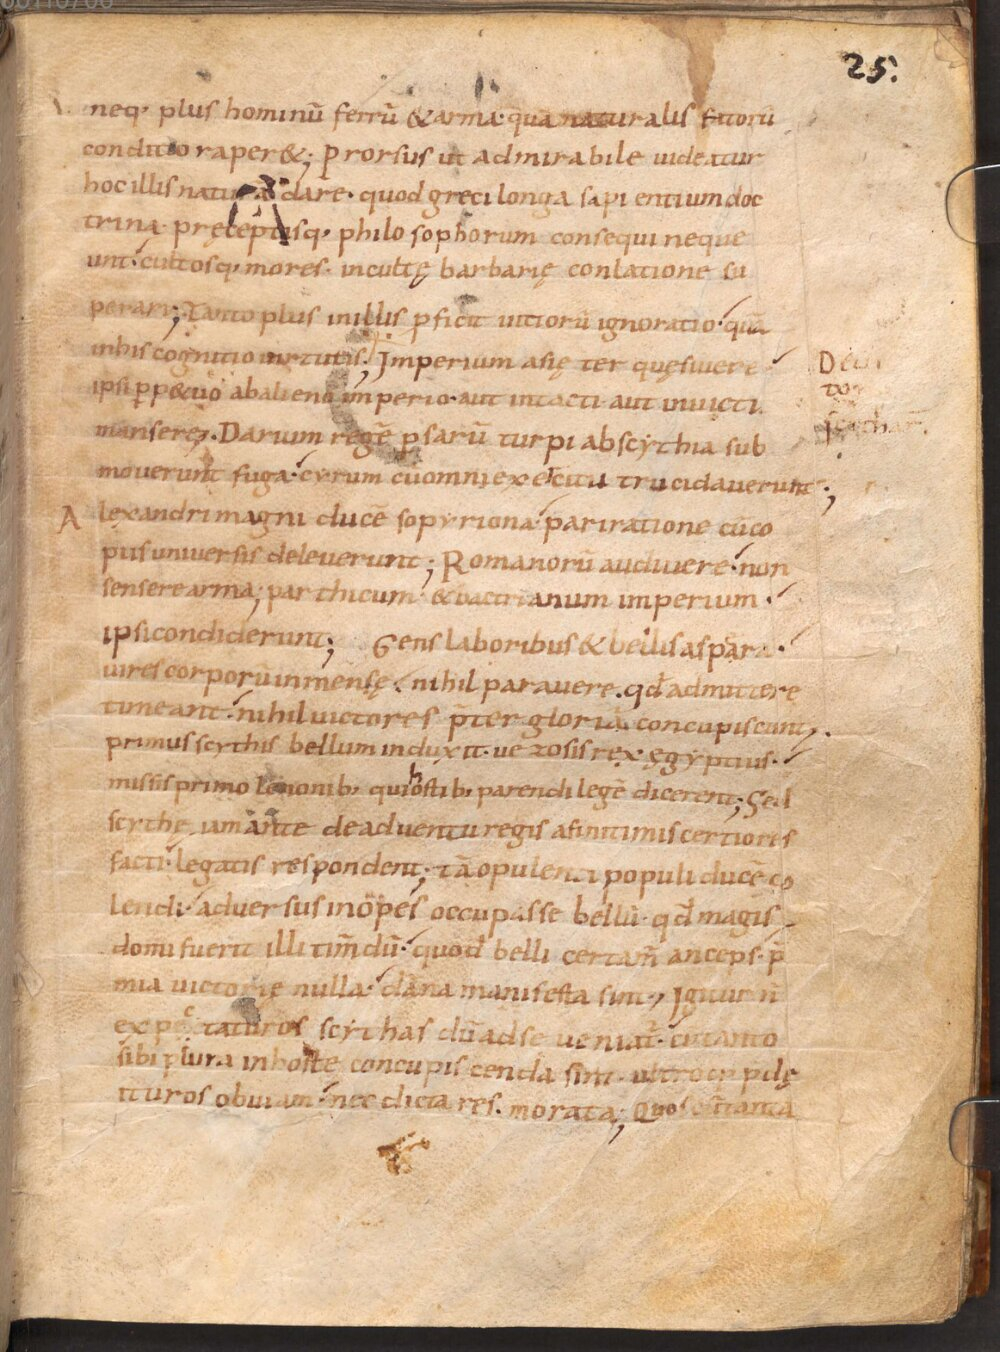 25.
neq· plus hominū ferrū & arma· quā naturalis fatorū
conditio raper&; Prorsus ut admirabile uideatur
hoc illis naturā dare· quod greci longa sapientium doc
trina· pręceptisq· philosophorum consequi neque
unt· cultosq· mores· incultę barbarię conlatione su
perari; Tanto plus in illis pficit uitiorū ignoratio· quā
in his cognitio uirtutis; Imperium asię ter quęsiuere·
ipsi ppetuo abalieno imperio· aut intacti aut inuicti
manserę· Darum regē psarū turpi abscythia sub
mouerunt fuga· cyrum cū omni exercitu trucidauerunt;
Alexandri magni ducē sopyriona· pari ratione cū co
piis uniuersis deleuerunt; Romanorū audiuere· non
sensere arma; parthicum & bactrianum imperium·
ipsi condiderunt; Gens laboribus & bellis aspāra·
uires corporū inmensę· nihil parauere· qd admittere
timeant· nihil uictores p̄ter gloriā concupiscunt,·
primus scythis bellum induxit· uezosis rex ęgyptius·
missis primo lenonib; qui hostib; parendi legē dicerent; Sed
scythę iam ante de aduentu regis afinitimis certiores
facti· legatis respondent; tā opulenti populi ducē co
lendi· aduersus inopes occupasse bellū· qd magis
domi fuerit illi tim̄dū· quod belli certam̄ anceps· p̄
mia uictorię nulla· dāna manifesta sint, Igitur n̄
expectaturos scythas dū adse ueniat̄· cū tanto
sibi plura in hoste concupiscenda sint· ultroq; pdę
ituros obuiam· nec dicta res morata; Quos cū tanta
scithar̄.